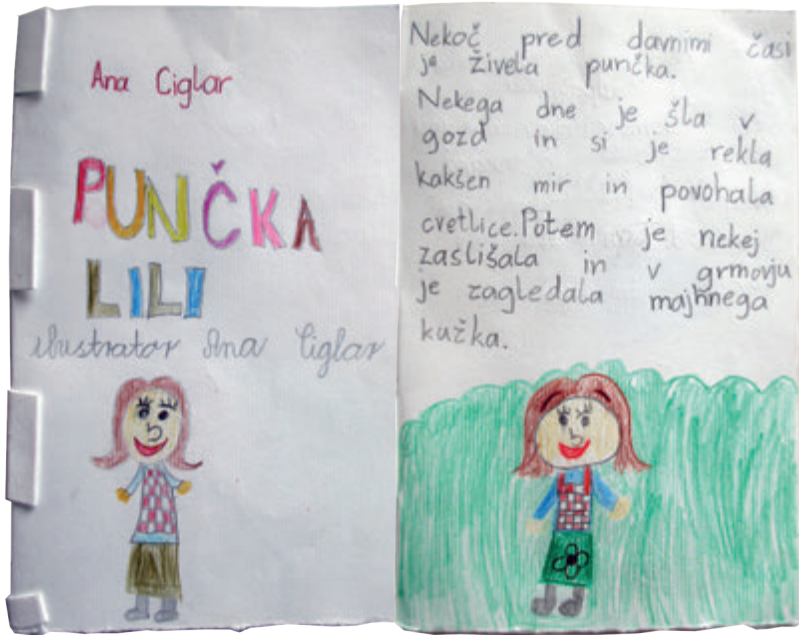 Ana Ciglar
PUNČKA
LILI
ilustrator Ana Ciglar
Nekoč pred davnimi časi
je živela punčka.
Nekega dne je šla v
gozd in si je rekla
kakšen mir in povohala
cvetlice.Potem je nekej
zaslišala in v grmovju
je zagledala majhnega
kužka.